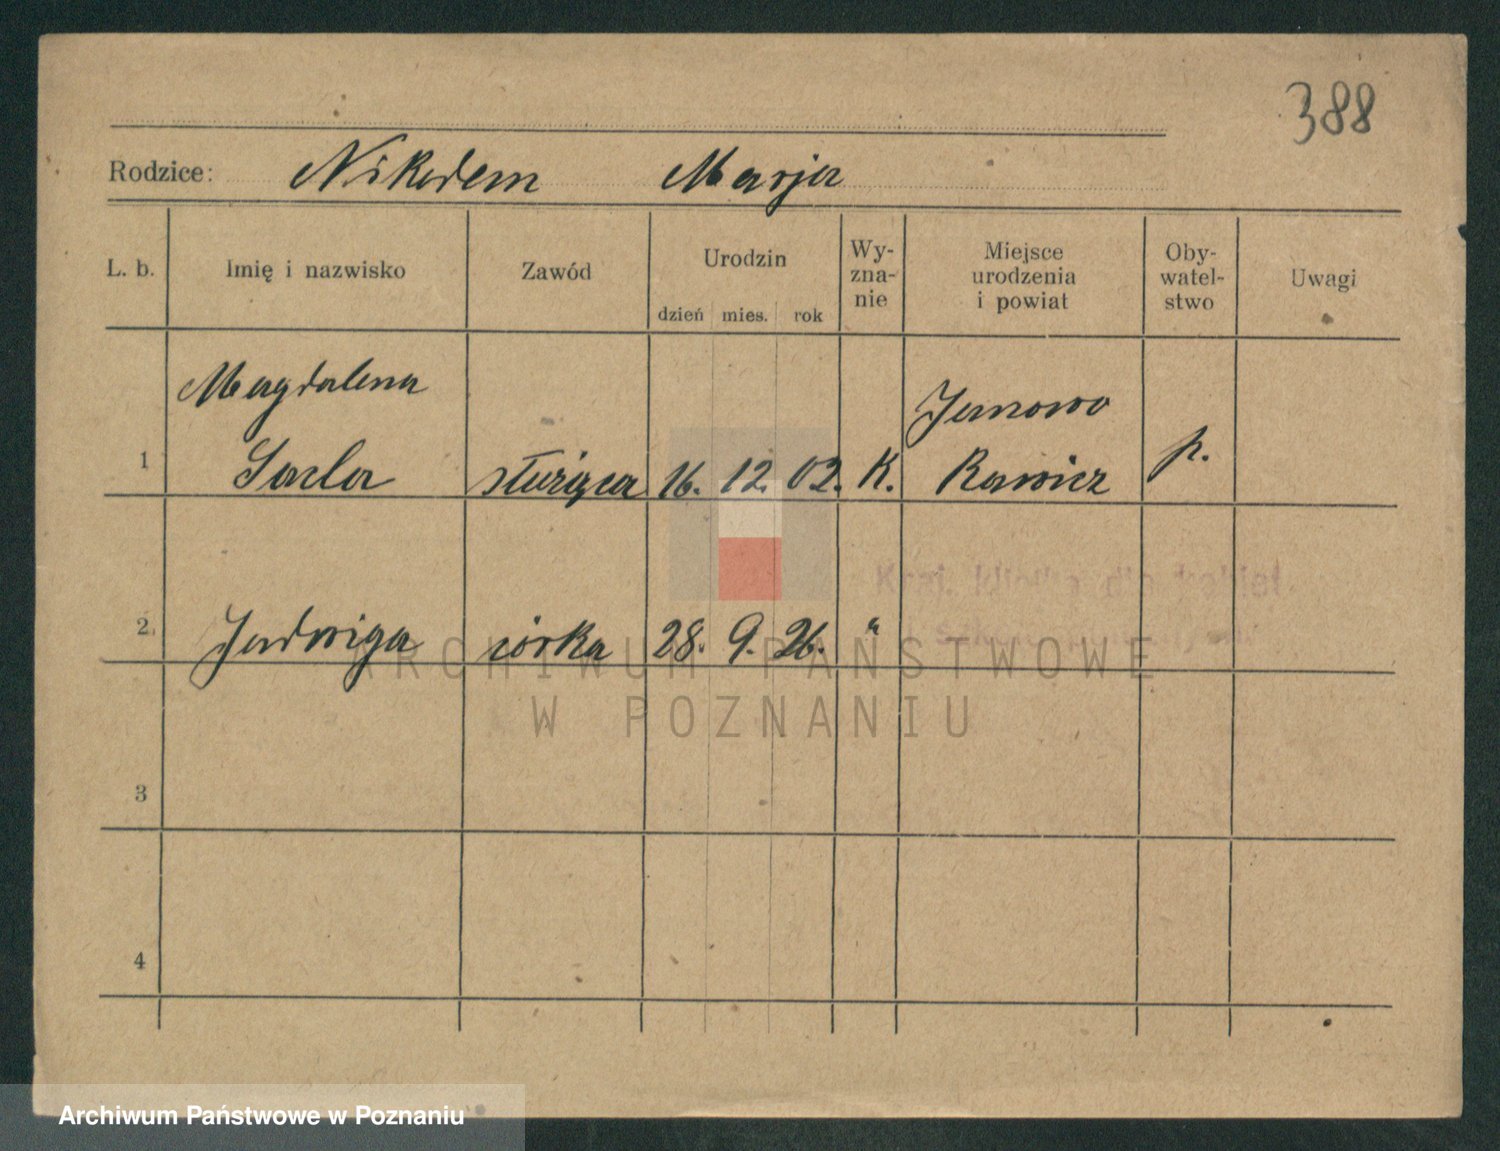 388
Rodzice: Nikodem Marja
L. b. Imię i nazwisko Zawód Urodzin dzień mies. rok Wy-zna-nie Miejsce urodzenia i powiat Oby-watel-stwo Uwagi
Magdalena Janowo
1 służąca 16. 12. 02. K. Rawicz p.
Kraj. klinika dla kobiet
2. Jadwiga córka 28. 9. 26. "
ARCHIWUM PAŃSTWOWE
W POZNANIU
3
4
Archiwum Państwowe w Poznaniu